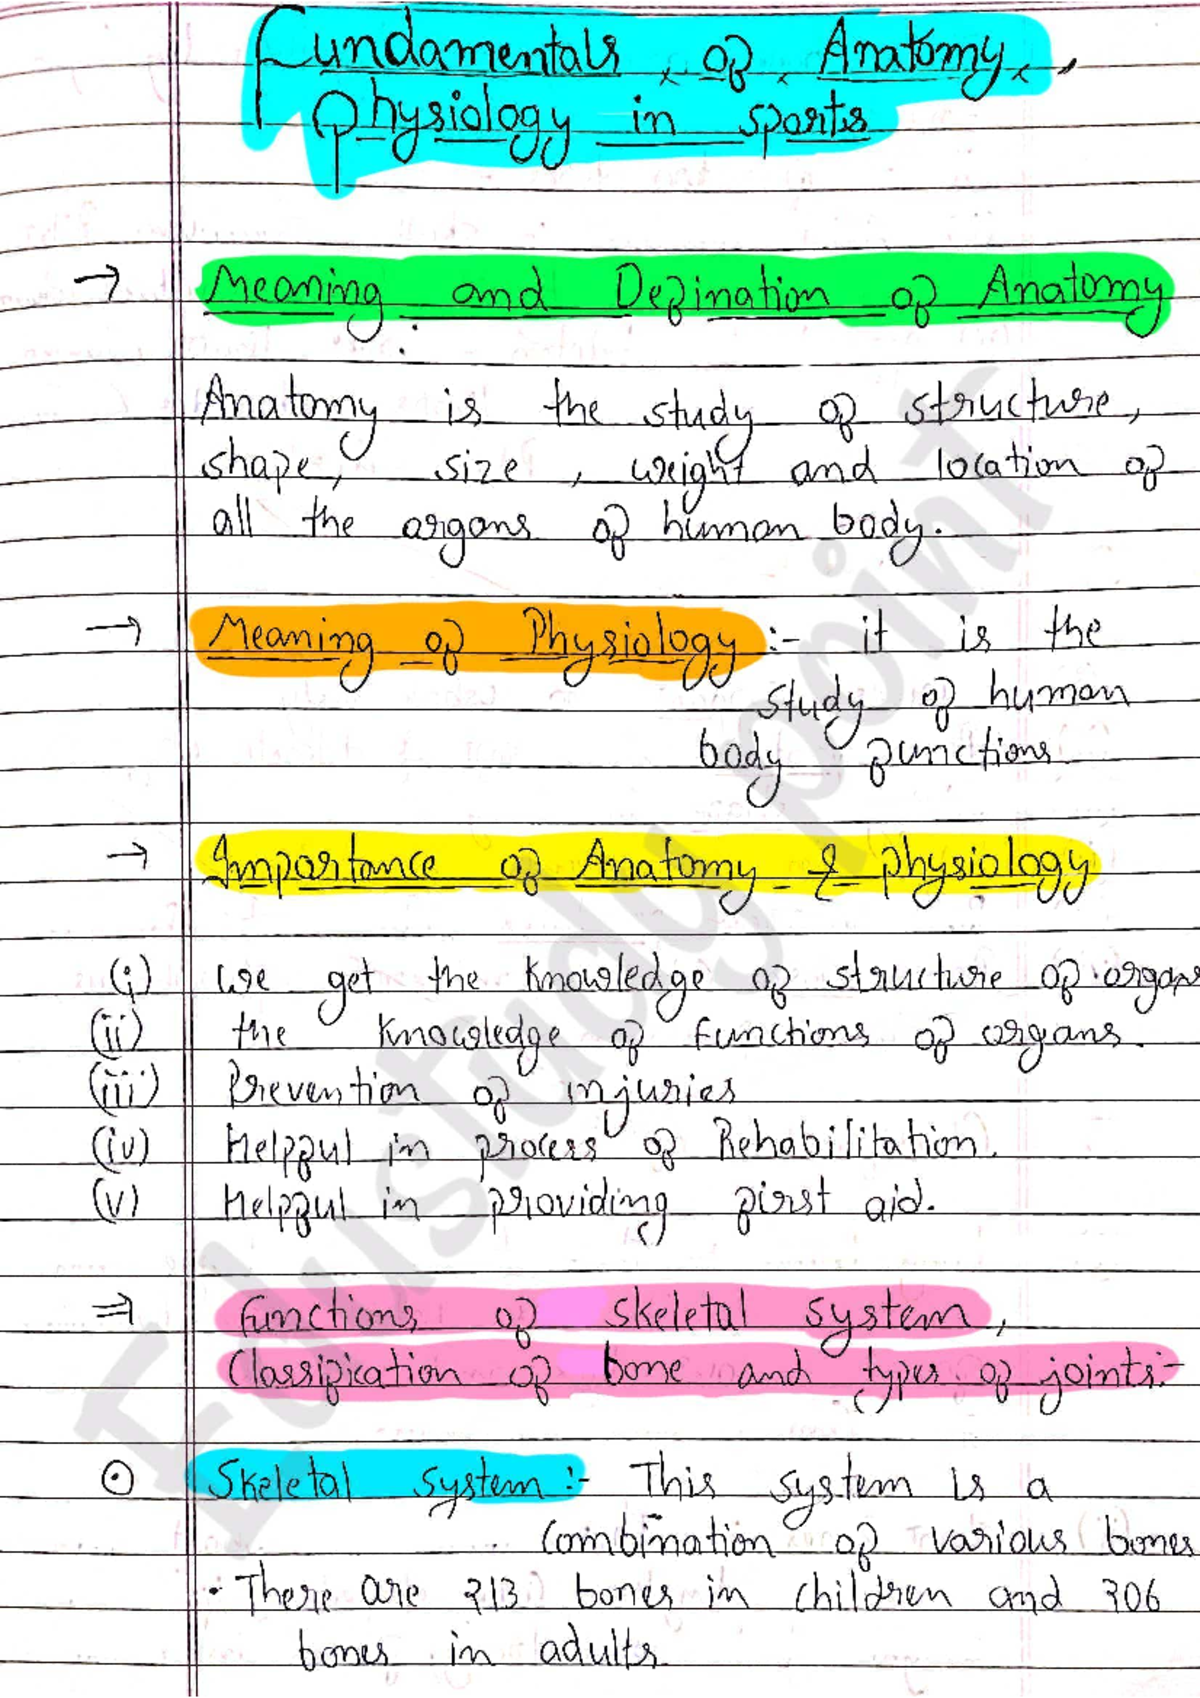 Fundamentals of Anatomy,
Physiology in sports
→ Meaning and Defination of Anatomy
Anatomy is the study of structure,
shape, size, weight and location of
all the organs of human body.
→ Meaning of Physiology :- it is the
study of human
body functions
→ Importance of Anatomy & physiology
(i) we get the knowledge of structure of organs
(ii) the knowledge of functions of organs.
(iii) Prevention of injuries
(iv) Helpful in process of Rehabilitation.
(v) Helpful in providing first aid.
⇒ Functions of skeletal system,
Classification of bone and types of joints:-
⊙ Skeletal system:- This system is a
Combination of various bones
• There are 213 bones in children and 206
bones in adults
Edustudy point